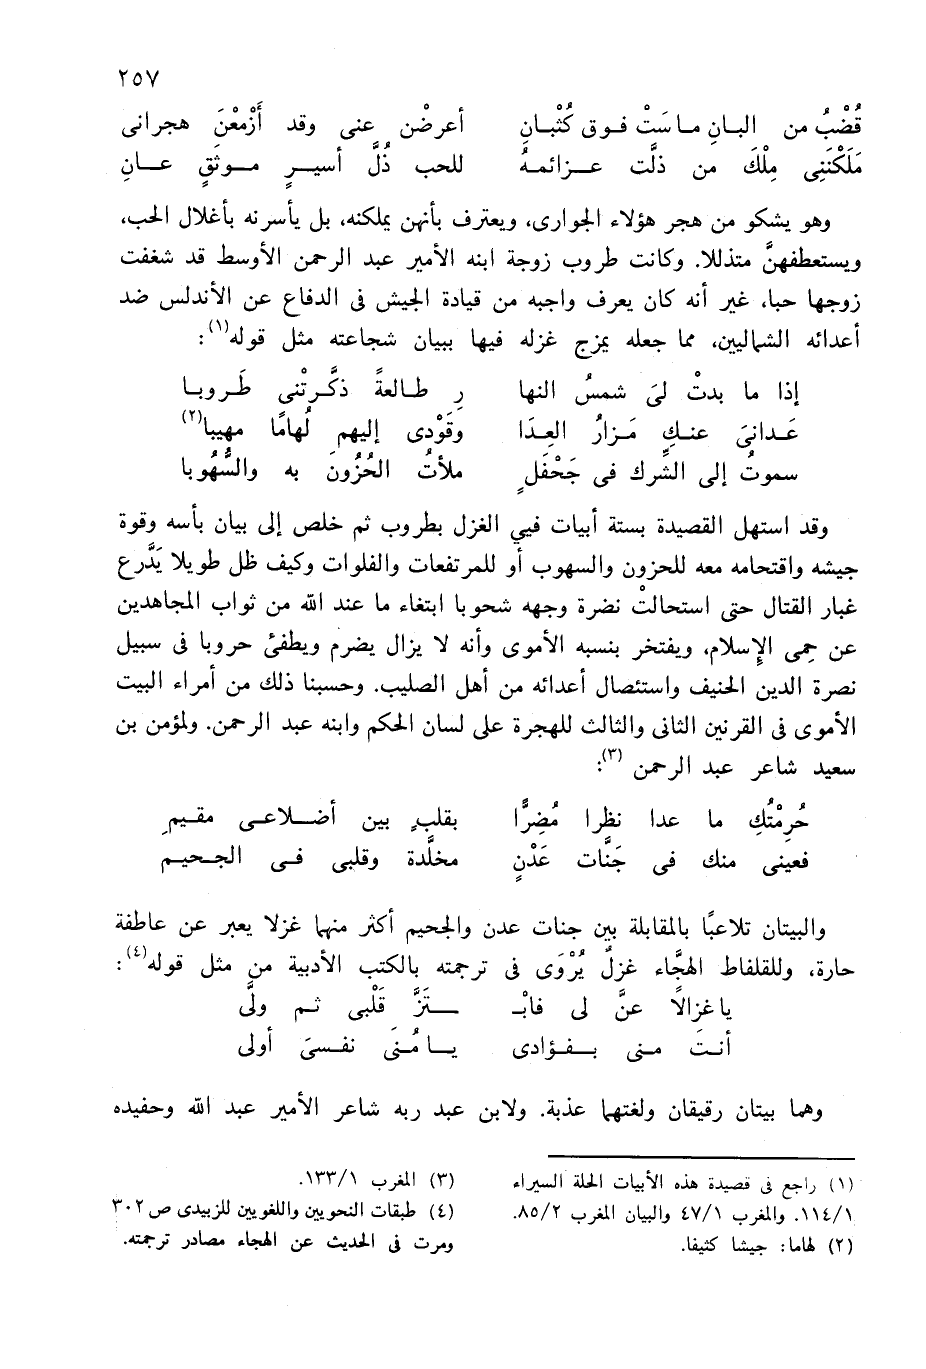 ٢٥٧
قُضْبُ من البانِ ماسَتْ فوق كُثْبانِ أعرضْن عنى وقد أَزْمعْنَ هجرانى
مَلَكْنَنِى مِلْكَ من ذلَّت عزائمهُ للحب ذُلَّ أسيرٍ موثَقٍ عانِ
وهو يشكو من هجر هؤلاء الجوارى، ويعترف بأنهن يملكنه، بل يأسرنه بأغلال الحب،
ويستعطفهنَّ متذللا. وكانت طروب زوجة ابنه الأمير عبد الرحمن الأوسط قد شغفت
زوجها حبا، غير أنه كان يعرف واجبه من قيادة الجيش فى الدفاع عن الأندلس ضد
أعدائه الشماليين، مما جعله يمزج غزله فيها ببيان شجاعته مثل قوله(١):
إذا ما بدتْ لىَ شمسُ النها رِ طالعةً ذكَّرتْنى طَروبا
عَدانىَ عنكِ مَزارُ العِدَا وقَوْدى إليهم لُهامًا مهيبا(٢)
سموتُ إلى الشِّرك فى جَحْفَلٍ ملأتُ الحُزُونَ به والسُّهُوبا
وقد استهل القصيدة بستة أبيات فيي الغزل بطروب ثم خلص إلى بيان بأسه وقوة
جيشه واقتحامه معه للحزون والسهوب أو للمرتفعات والفلوات وكيف ظل طويلا يَدَّرع
غبار القتال حتى استحالتْ نضرة وجهه شحوبا ابتغاء ما عند الله من ثواب المجاهدين
عن حِمى الإسلام، ويفتخر بنسبه الأموى وأنه لا يزال يضرم ويطفئ حروبا فى سبيل
نصرة الدين الحنيف واستئصال أعدائه من أهل الصليب. وحسبنا ذلك من أمراء البيت
الأموى فى القرنين الثانى والثالث للهجرة على لسان الحكم وابنه عبد الرحمن. ولمؤمن بن
سعيد شاعر عبد الرحمن (٣):
حُرِمْتُكِ ما عدا نظرا مُضِرًّا بقلبٍ بين أضلاعى مقيمِ
فعينى منك فى جَنَّات عَدْنٍ مخلَّدة وقلبى فى الجحيم
والبيتان تلاعبًا بالمقابلة بين جنات عدن والجحيم أكثر منهما غزلا يعبر عن عاطفة
حارة، وللقلفاط الهجَّاء غزلٌ يُرْوَى فى ترجمته بالكتب الأدبية من مثل قوله(٤):
يا غزالاً عنَّ لى فابْـ ـتَزَّ قَلْبى ثم ولَّى
أنتَ منى بفؤادى يا مُنَى نفسىَ أولى
وهما بيتان رقيقان ولغتهما عذبة. ولابن عبد ربه شاعر الأمير عبد الله وحفيده
(١) راجع فى قصيدة هذه الأبيات الحلة السيراء
١١٤/١. والمغرب ٤٧/١ والبيان المغرب ٨٥/٢.
(٢) لهاما: جيشا كثيفا.
(٣) المغرب ١٣٣/١.
(٤) طبقات النحويين واللغويين للزبيدى ص ٣٠٢
ومرت فى الحديث عن الهجاء مصادر ترجمته.